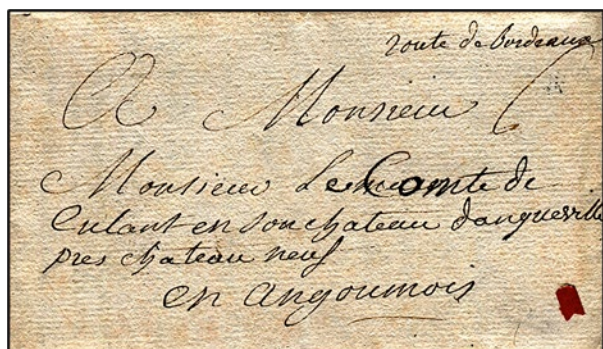 route de bordeaux
A Monsieur
Monsieur Le Comte de
Culant en son chateau dangueville
pres chateau neuf
en angoumois